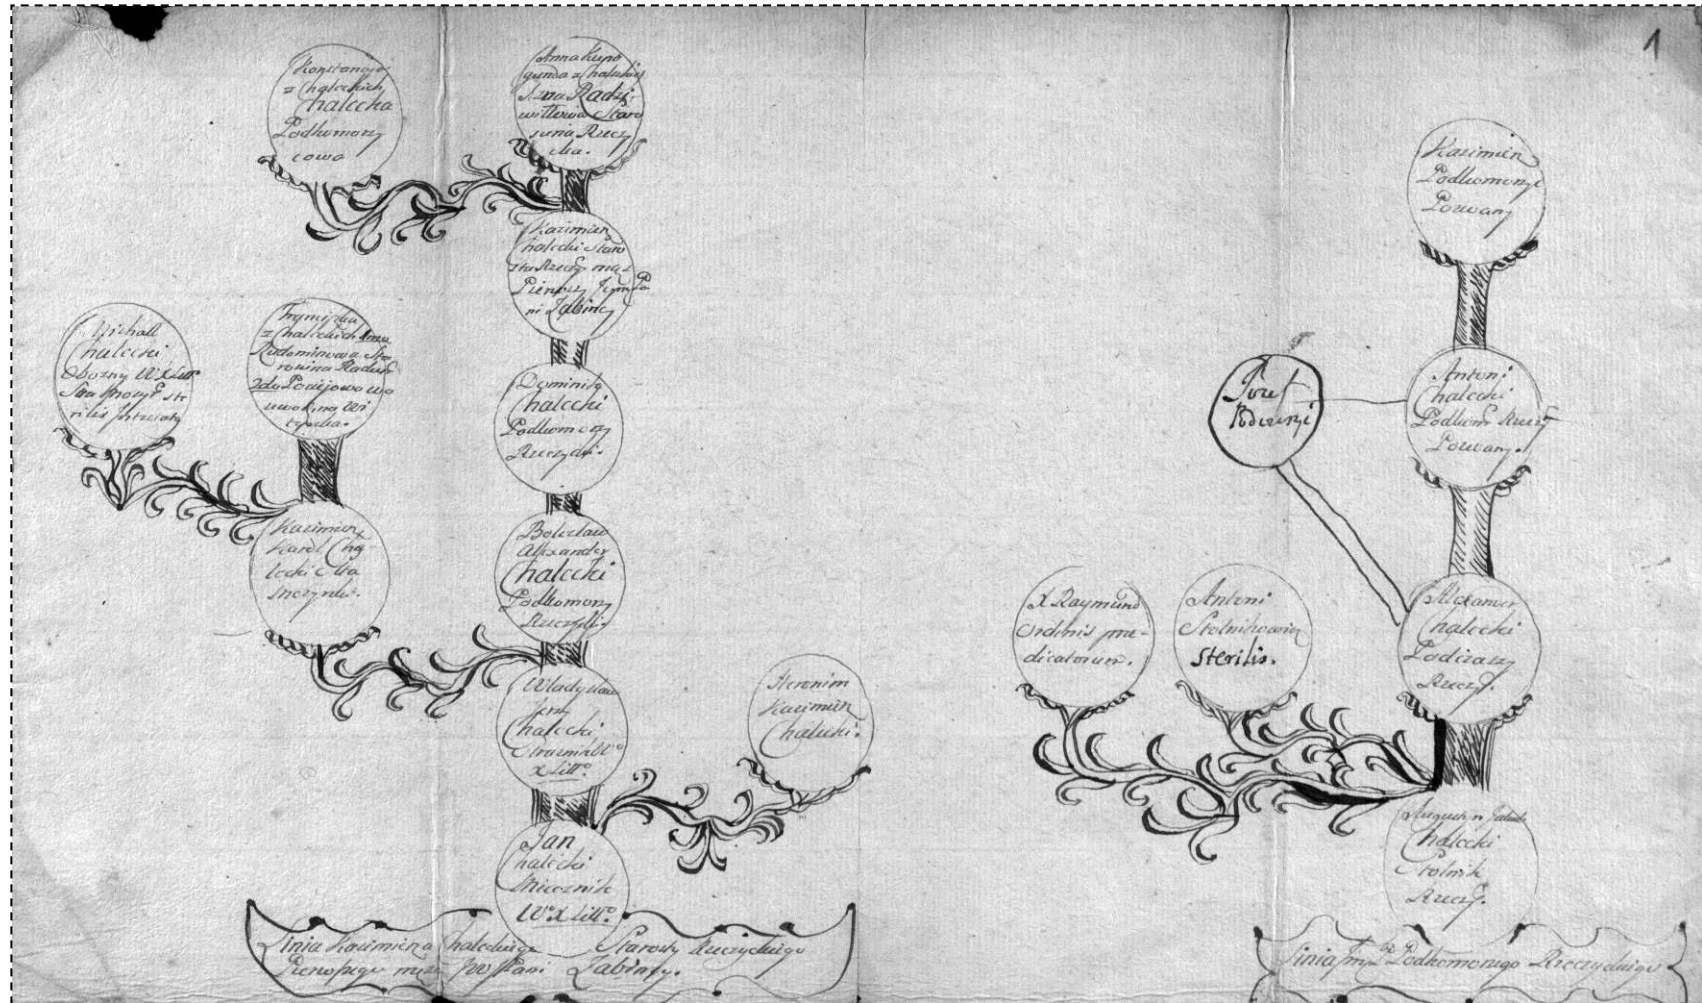 1
Konstancyi
z Chaleckich
Chalecka
Podkomorzy
cowa
Anna Kune
gunda z Chaleckich
Radzi-
wiłłowa Staro
ścina Rzeczy
cka.
Kazimierz
Chalecki Staro
sta Rzecz mąż
Pierwszy Jeym Pa
ni Zabiny
Michał
Chalecki
Oboźny W X Litt
ste
rilis
z Chaleckich
Rudominowa Sta
Powijowa Wo
Wi
tepska.
Dominik
Chalecki
Podkomorzy
Rzeczycki.
Kazimierz
Karol Cha-
lecki Sta
Bolesław
Alexander
Chalecki
Podkomorzy
Rzeczycki.
Władysław
Jerzy
Chalecki
Strażnik Wo
X Litto
Heronim
Kazimierz
Chalecki.
Jan
Chalecki
Miecznik
Wo X Litto
Linia Kazimierza Chaleckiego Starosty Rzeczyckiego
Pierwszego męża JW Pani Zabiny.
Kazimierz
Podkomorzy
Pozwany
Józef
Antoni
Chalecki
Podkom Rzecz
Pozwany.
X Raymund
Ordinis præ-
dicatorum.
Antoni
Stolnikowicz
Sterilis.
Alexander
Chalecki
Podczaszy
Rzecz.
Augustyn
Chalecki
Stolnik
Rzecz.
Linia Podkomorzego Rzeczyckiego